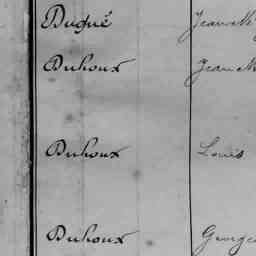 Dugué Jean M
Duhoux Jean M
Duhoux Louis
Duhoux George